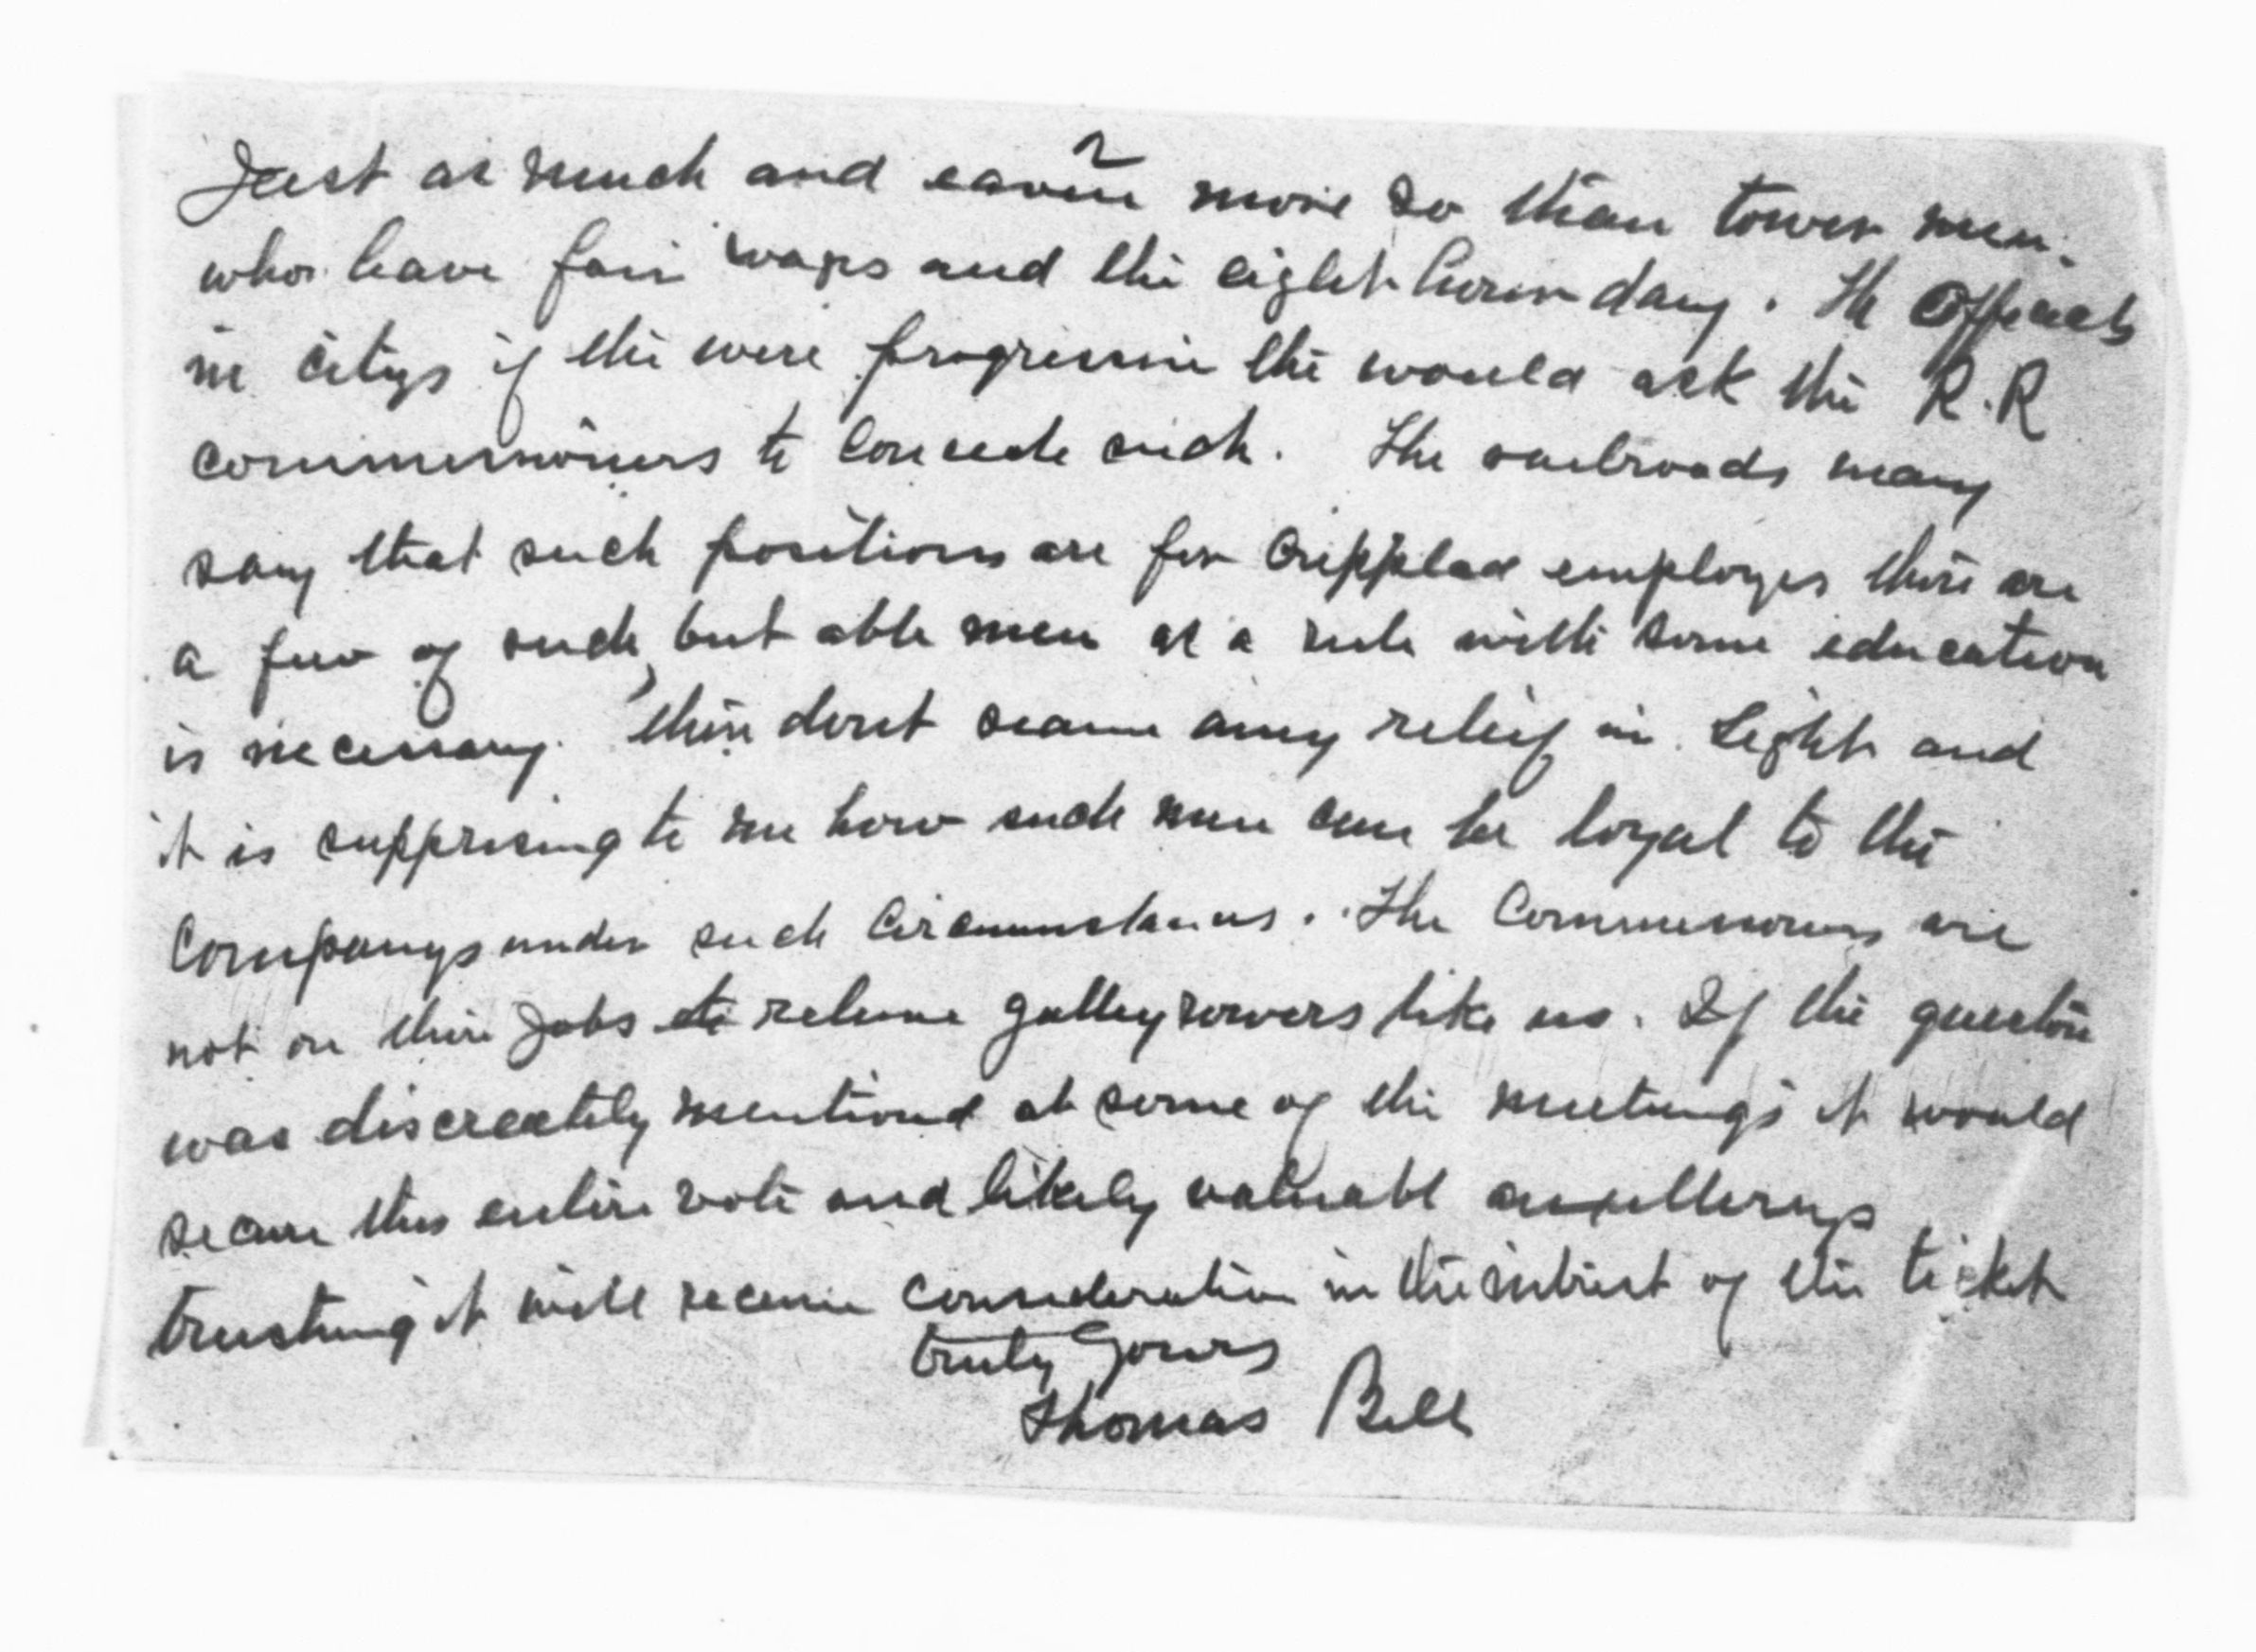 Just as much and eaven more so than tower men.
who have fair wages and the eight hour day. The
in citys if the were progressive the would ask the R.R
commissioners to concede such. The railroads many
say that such positions are for crippled employes there are
a few of such, but able men as a rule with some education
is necessary. there dont seame any relief in Sight and
it is supprising to me how such men can be loyal to the
Companys under such Circumstances. The Commissioners are
not on their Jobs to relieve galley rowers like us. If the question
was discreetly mentioned at some of the meetings it would
secure this entire vote and likely valuabl
trusting it will receive consideration in the intrest of the ticket
truly Yours
Thomas Bell